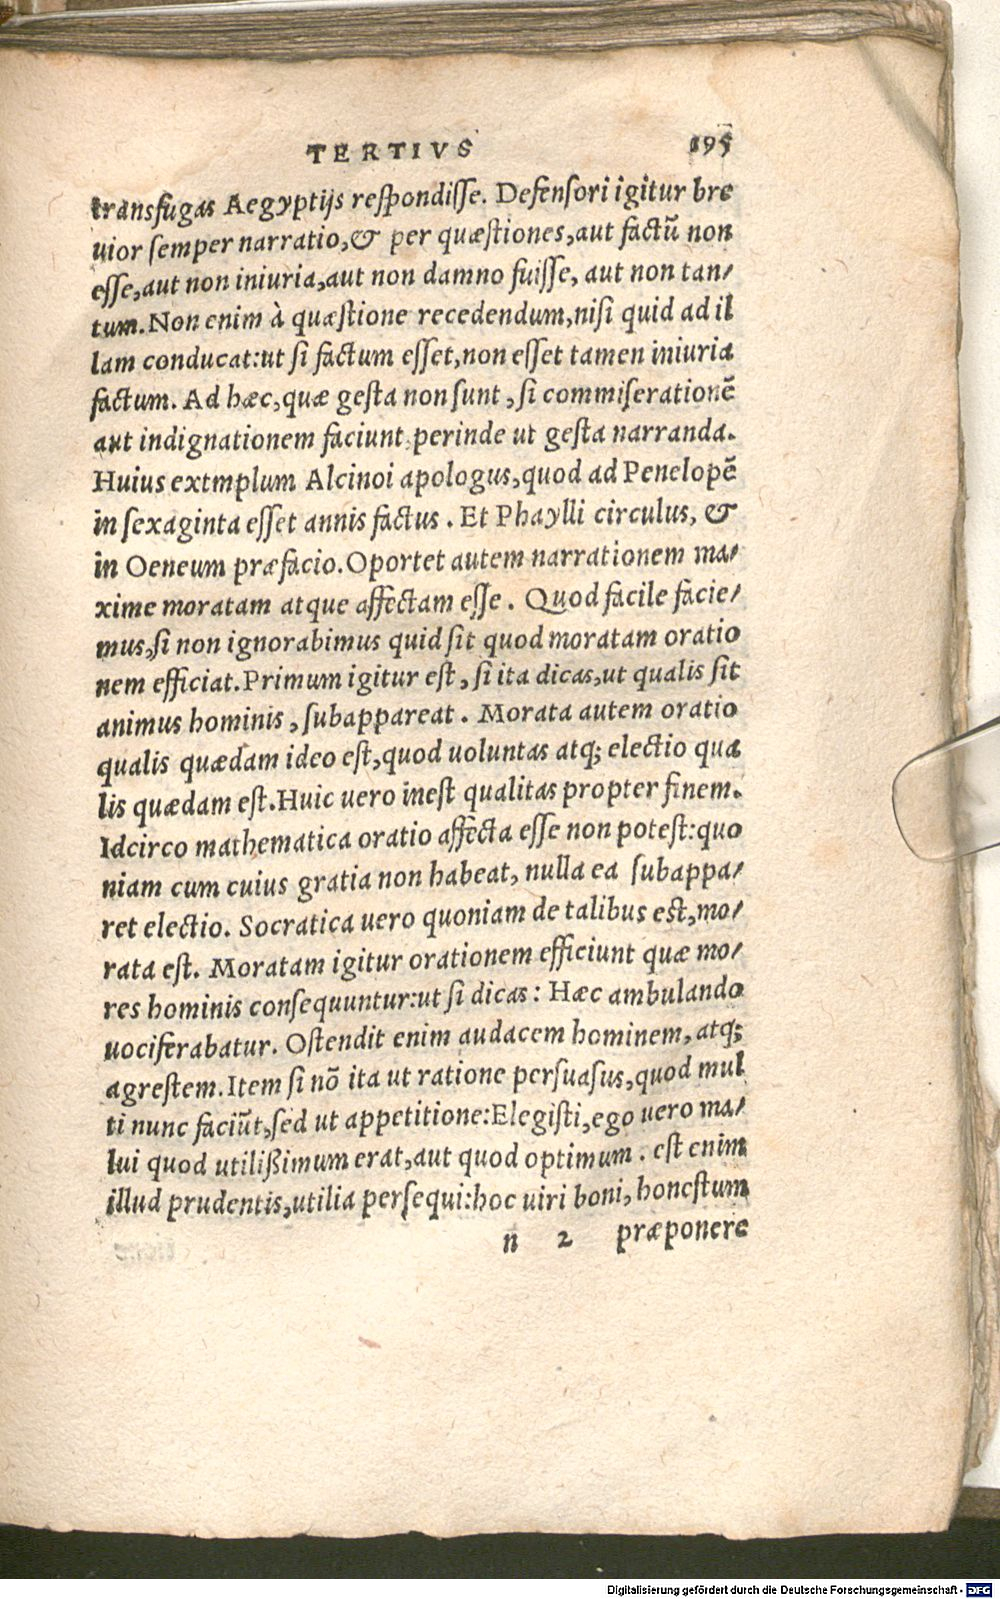 TERTIVS 195
transfugas Aegyptijs respondisse. Defensori igitur bre
uior semper narratio,& per quæstiones,aut factũ non
esse,aut non iniuria,aut non damno fuisse, aut non tan/
tum.Non enim à quæstione recedendum,nisi quid ad il
lam conducat:ut si factum esset,non esset tamen iniuria
factum. Ad hæc,quæ gesta non sunt, si commiserationẽ
aut indignationem faciunt perinde ut gesta narranda.
Huius extmplum Alcinoi apologus,quod ad Penelopẽ
in sexaginta esset annis factus. Et Phaylli circulus, &
in Oeneum præfacio.Oportet autem narrationem ma/
xime moratam atque affectam esse. Quod facile facie/
mus,si non ignorabimus quid sit quod moratam oratio
nem efficiat.Primum igitur est, si ita dicas,ut qualis sit
animus hominis, subappareat. Morata autem oratio
qualis quædam ideo est,quod uoluntas atq; electio qua
lis quædam est.Huic uero inest qualitas propter finem.
Idcirco mathematica oratio affecta esse non potest:quo
niam cum cuius gratia non habeat, nulla ea subappa/
ret electio. Socratica uero quoniam de talibus est,mo/
rata est. Moratam igitur orationem efficiunt quæ mo/
res hominis consequuntur:ut si dicas: Hæc ambulando
uociferabatur. Ostendit enim audacem hominem, atq;
agrestem.Item si nõ ita ut ratione persuasus,quod mul
ti nunc faciũt,sed ut appetitione:Elegisti,ego uero ma/
lui quod utilißimum erat,aut quod optimum. est enim
illud prudentis,utilia persequi:hoc uiri boni, honestum
n 2 præponere
Digitalisierung gefördert durch die Deutsche Forschungsgemeinschaft - DFG